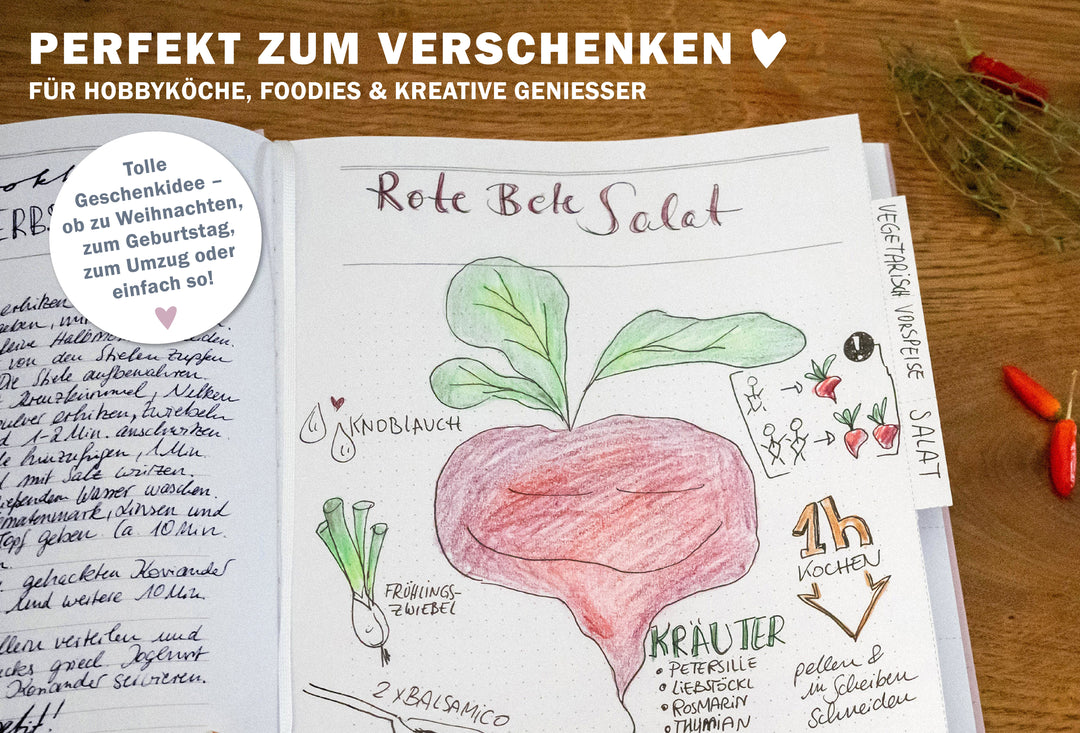 PERFEKT ZUM VERSCHENKEN
FÜR HOBBYKÖCHE, FOODIES & KREATIVE GENIESSER
Tolle
Geschenkidee –
ob zu Weihnachten,
zum Geburtstag,
zum Umzug oder
einfach so!
erhitzen
von den Stielen zupfen
Die Stiele aufbewahren.
Kreuzkümmel, Nelken
erhitzen, Zwiebeln
1-2 Min. anschwitzen.
hinzufügen, 1 Min.
mit Salz würzen.
Wasser waschen.
Linsen und
Topf geben. Ca. 10 Min.
gehackten Koriander
und weitere 10 Min.
verteilen und
Joghurt
Koriander servieren.
Rote Bete Salat
VEGETARISCH VORSPEISE SALAT
KNOBLAUCH
FRÜHLINGS-
ZWIEBEL
2 x BALSAMICO
1h
KOCHEN
KRÄUTER
• PETERSILLE
• LIEBSTÖCKL
• ROSMARIN
• THYMIAN
pellen &
in Scheiben
schneiden